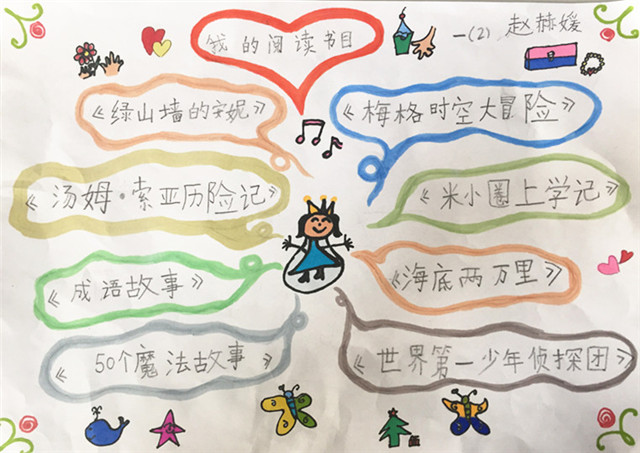 我的阅读书目
一(2) 赵赫媛
《绿山墙的安妮》
《梅格时空大冒险》
《汤姆·索亚历险记》
《米小圈上学记》
《成语故事》
《海底两万里》
《50个魔法故事》
《世界第一少年侦探团》